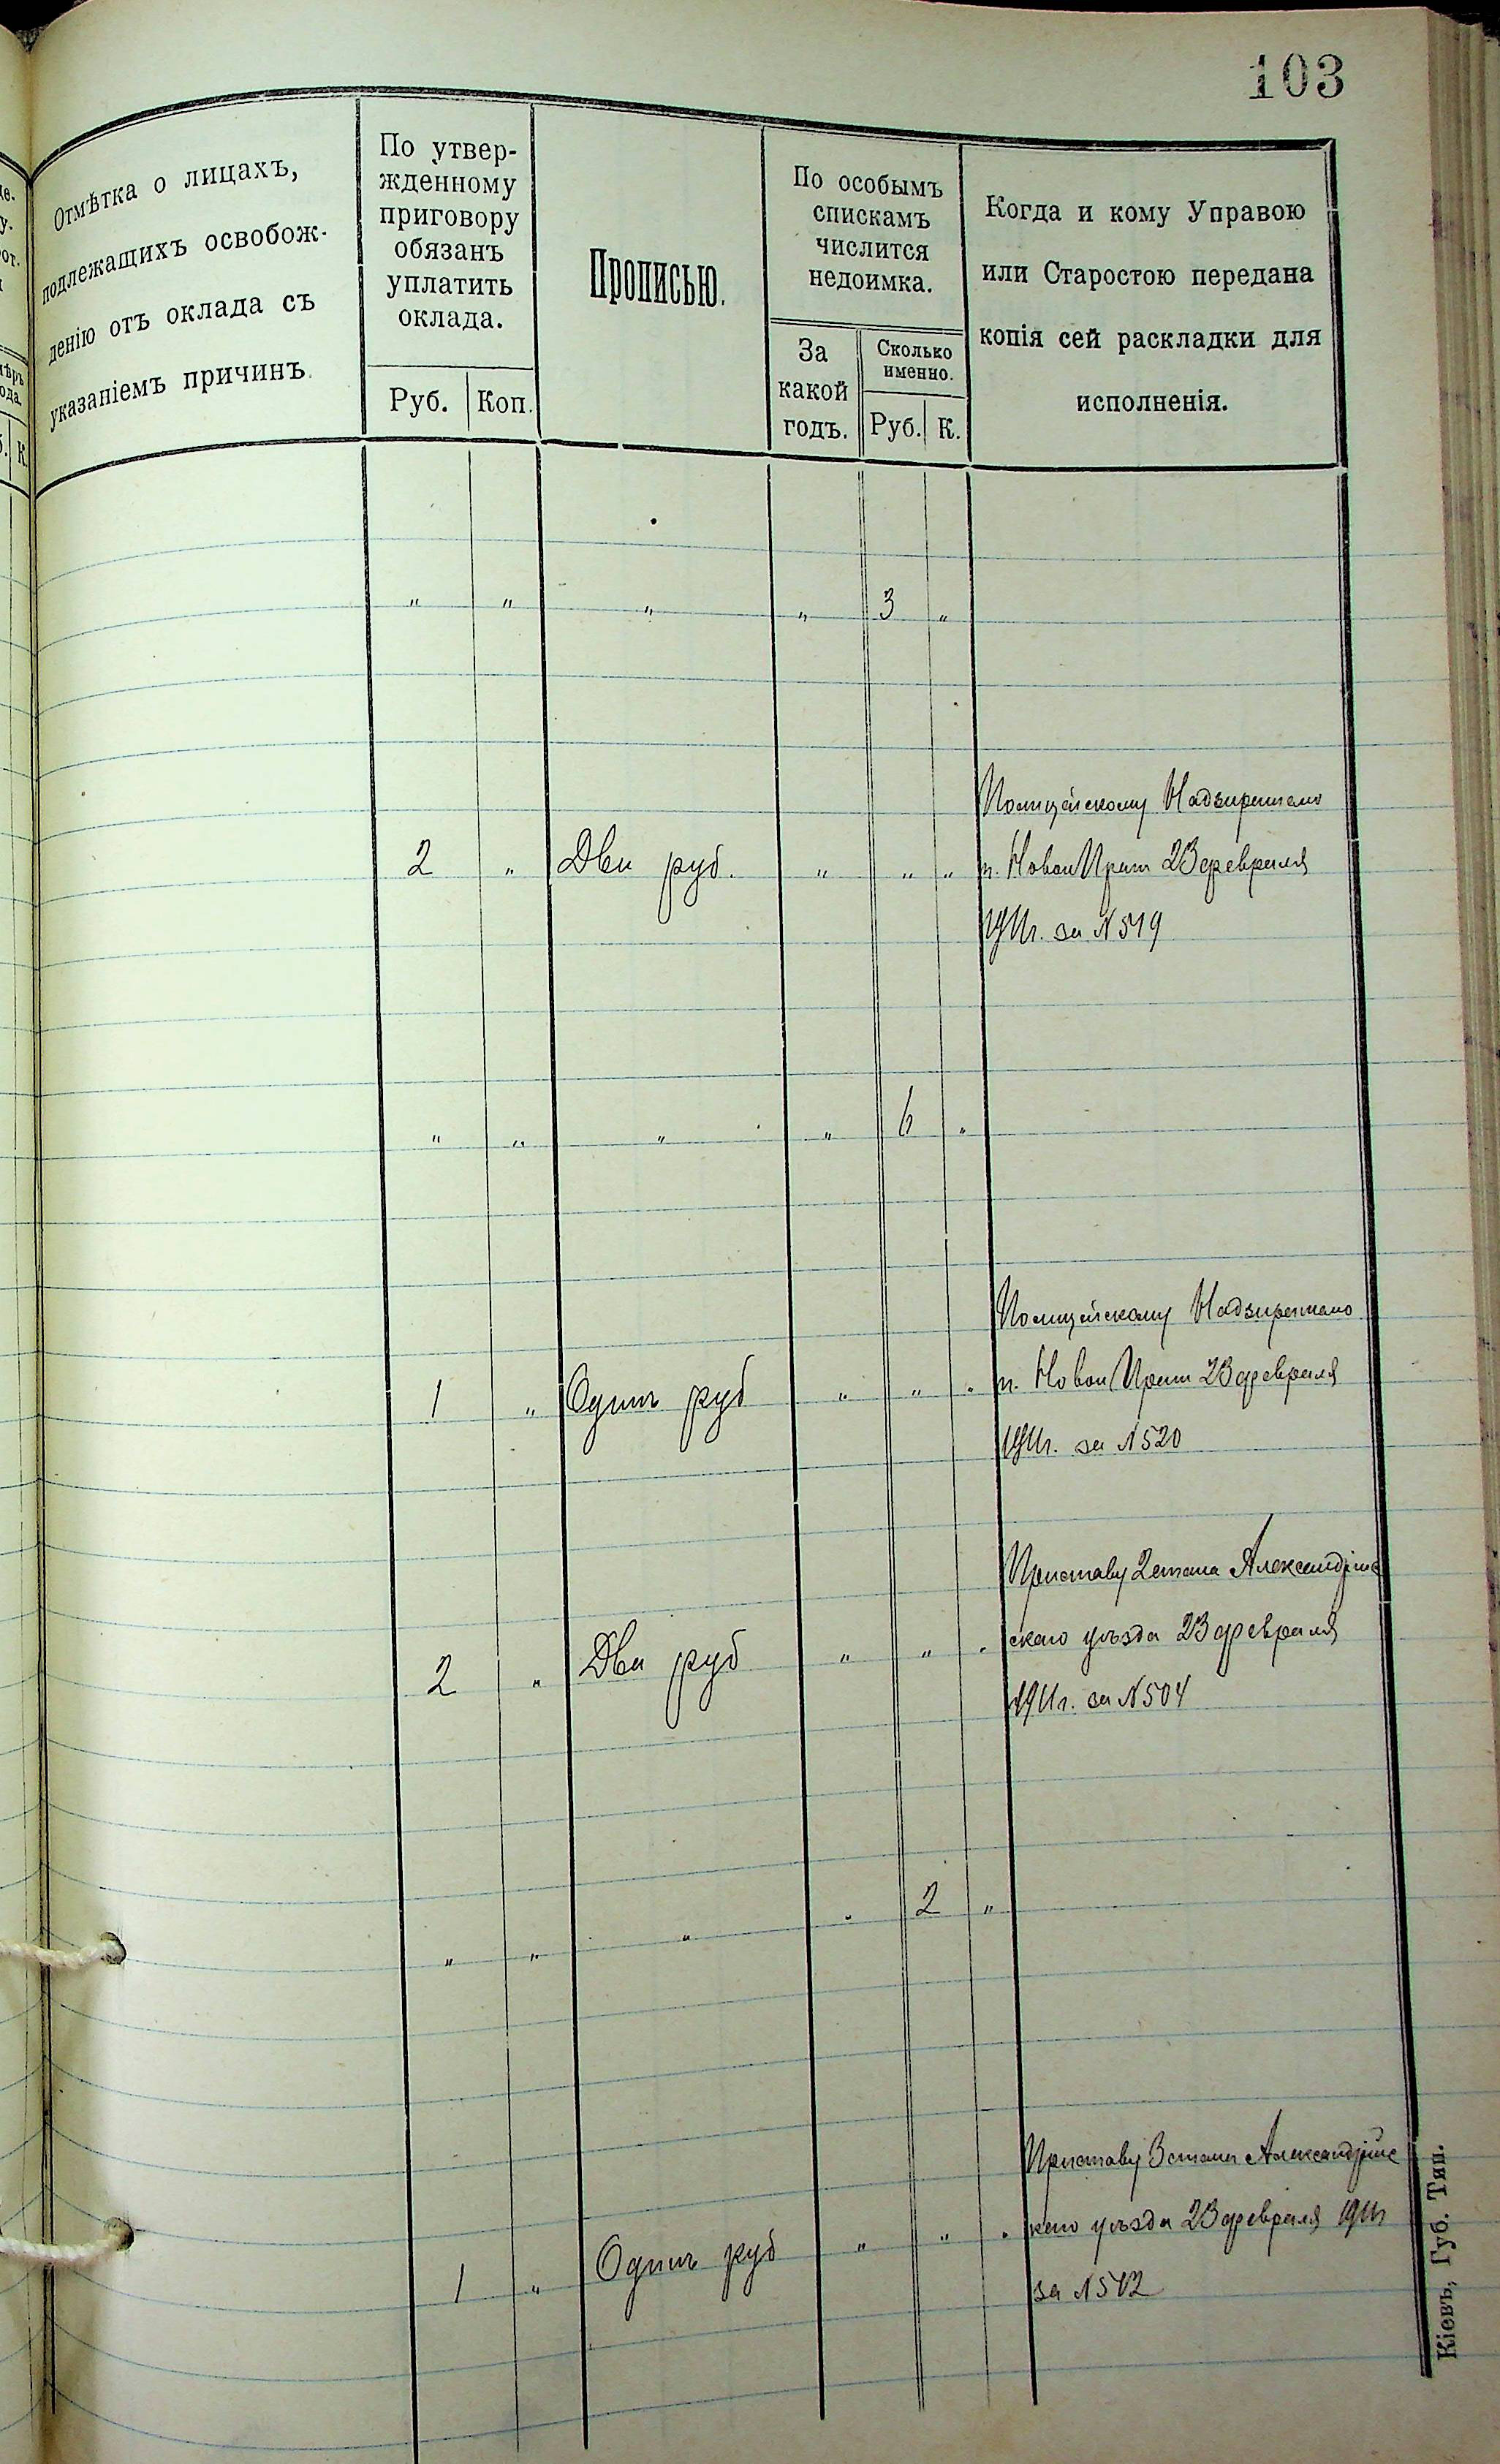 103
Отмѣтка о лицахъ,
подлежащихъ освобож-
денію отъ оклада съ
указаніемъ причинъ.
По утвер-
жденному
приговору
обязанъ
уплатить
оклада.
Руб. Коп.
Прописью.
По особымъ
спискамъ
числится
недоимка.
За
какой
годъ.
Сколько
именно.
Руб. К.
Когда и кому Управою
или Старостою передана
копія сей раскладки для
исполненія.
" " " " 3 "
Полицейскому Надзирателю
2 " Два руб. " " " п. Новой Праги 23 февраля
1911г. за №519
" " " " 6 "
Полицейскому Надзирателю
1 " Одинъ руб " " " п. Новой Праги 23 февраля
1911г. за №520
Приставу 2 стана Александрійс
2 " Два руб " " " скаго уѣзда 23 февраля
1911г. за №504
" " " " 2 "
Приставу 3 стана Александрійс
1 " Одинъ руб " " " каго уѣзда 23 февраля 1911г
за №512
Кіевъ, Губ. Тип.